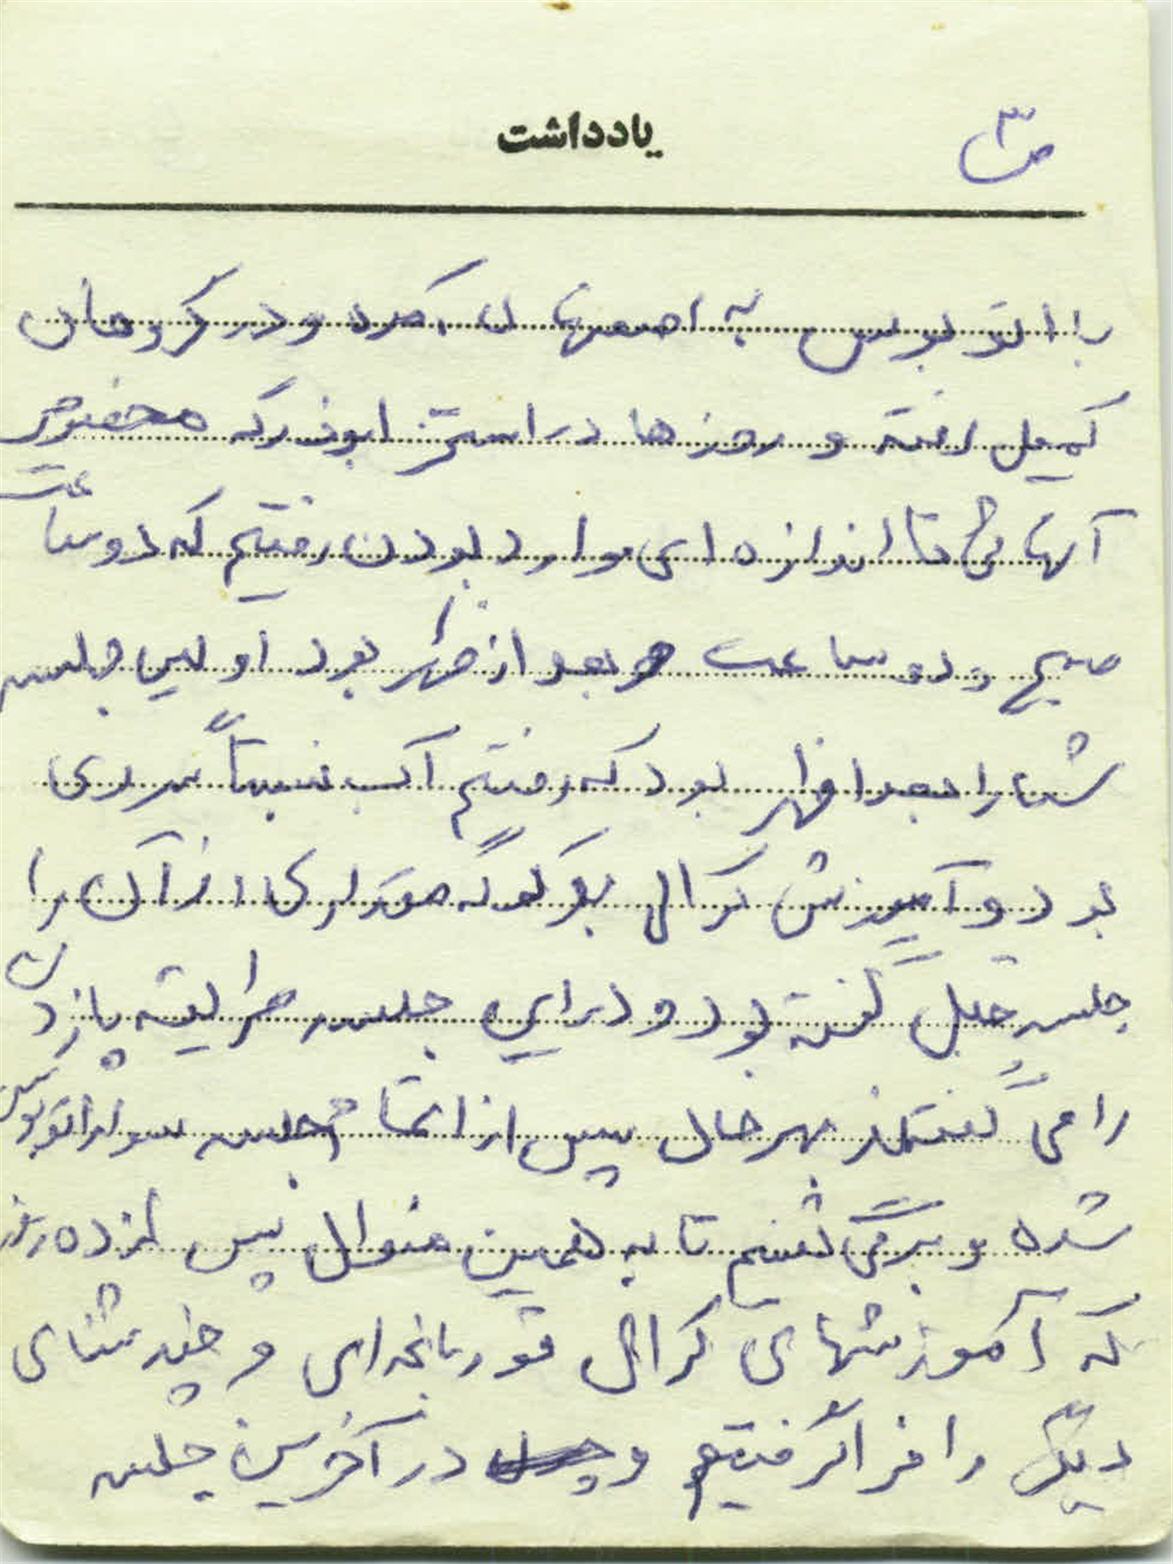 یادداشت
ص ۳
با اتوبوس به اصفهان آمده و در گردهان
کمیل رفته و روزها در استخر ابوذر که مخصوص
آنهائی تا اندازه ای وارد بودن رفتیم که دو ساعت
صبح و دو ساعت بعد از ظهر بود اولین جلسه
شنا را بعد از ظهر بود که رفتیم آب نسبتاً سردی
بود و آموزش کرال بود که مقداری از آن را
جلسه قبل گفته بود و در این جلسه طریقه پا زدن
را می گفتند بهر حال پس از اتمام جلسه سوار اتوبوس
شده و برمی گشتیم تا به همین منوال پس از ده روز
که آموزشهای کرال قورباغه ای و چند شنای
دیگر را فرا گرفتیم و در آخرین جلسه